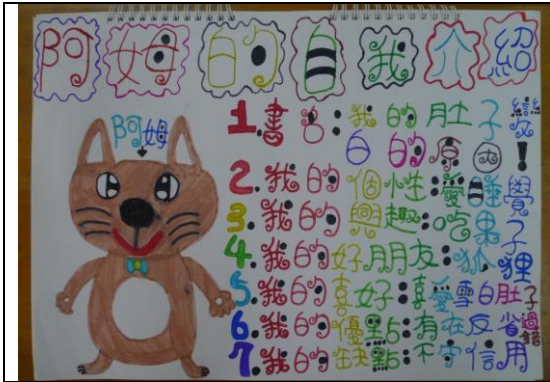 阿姆的自我介紹
阿姆
1.書名:我的肚子變
白的原因!
2.我的個性:愛睡覺
3.我的興趣:吃果子
4.我的好朋友:狐狸
5.我的喜好:喜愛雪白肚子
6.我的優點:有在反省過錯
7.我的缺點:不守信用